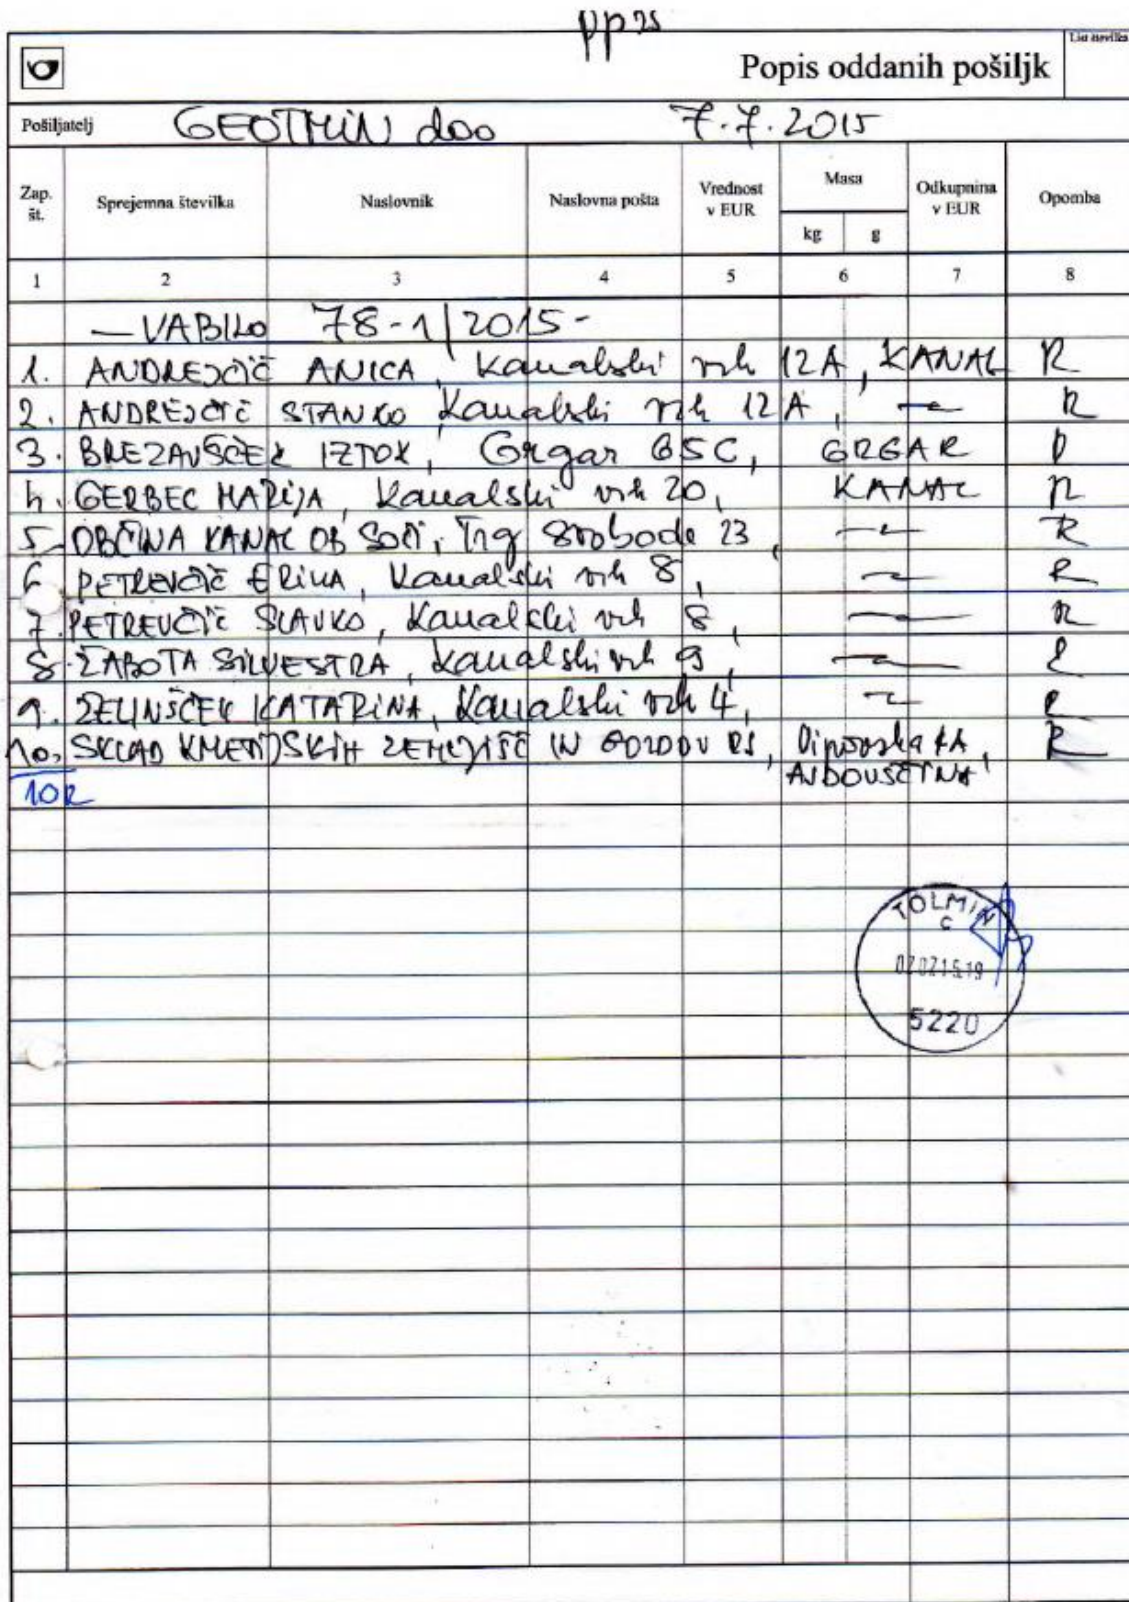 pp 25
Popis oddanih pošiljk
List številka
Pošiljatelj GEOTMIN doo 7.7.2015
Zap. št. Sprejemna številka Naslovnik Naslovna pošta Vrednost v EUR Masa Odkupnina v EUR Opomba
kg g
1 2 3 4 5 6 7 8
— VABILO 78-1/2015-
1. ANDREJČIČ ANICA, Kanalski vrh 12A, KANAL R
2. ANDREJČIČ STANKO Kanalski vrh 12A, R
3. BREZAVŠČEK IZTOK, Grgar 65C, GRGAR R
4. GERBEC MARIJA, Kanalski vrh 20, KANAL R
5. OBČINA KANAL OB SOČI, Trg Svobode 23, R
6. PETREVČIČ ERIKA, Kanalski vrh 8, R
7. PETREVČIČ SLAVKO, Kanalski vrh 8, R
8. ŽABOTA SILVESTRA, Kanalski vrh 9, R
9. ZELINŠČEK KATARINA, Kanalski vrh 4, R
10. SKLAD KMETIJSKIH ZEMLJIŠČ IN GOZDOV RS, R
AJDOVŠČINA
10R
TOLMIN
C
5220